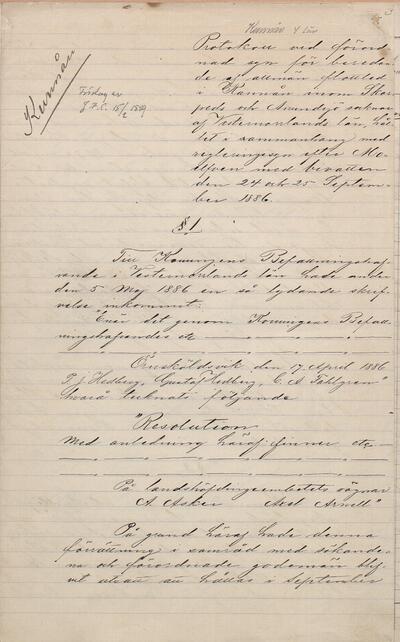 3
Kunnån
Protokoll ved förord
nad syn för bereda
de af allmän flottled
i Kannån inom Skor
peds och Anundsjö socknar
af Vesternorrlands län, häl
let i sammanhang med
regleringssyn efter Mo
elfven med bivatten
den 24 och 25 Septem
ber 1886.
Kunnån
§ 1
Till Konungens Befallningshaf
vande i Vesternorrlands län hade under
den 5 Maj 1886 en så lydande skrif
velse inkommit:
"Enär det genom Konungens Befall
ningshafvandes etc
Örnsköldsvik den 17 April 1886
P J Hedberg, Gustaf Hedberg, C. A Fahlgren"
hvarå tecknats följande
"Resolution
Med anledning häraf finner etc
På landshöfdingeembetets vägnar
A. Asker Axel Arnell"
På grund häraf hade denna
förrättning i samråd med sökande-
na och förordnade godemän blif
vit utsatt att hållas i September